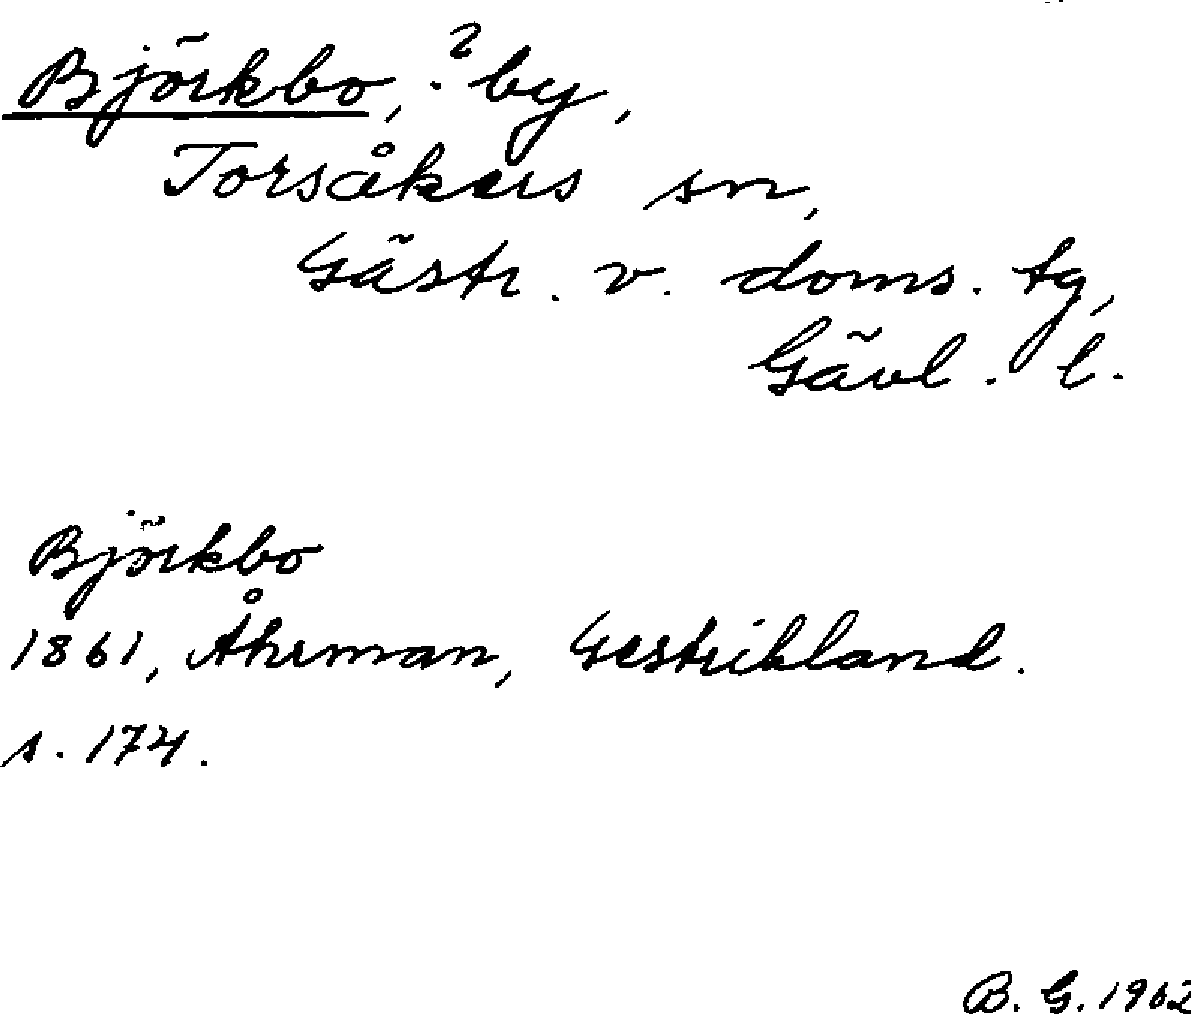 Björkbo, ? by,
Torsåkers sn,
Gästr. v. doms. tg,
Gävl. l.
Björkbo
1861, Åhrman, Gestrikland.
s. 174.
B. G. 1962